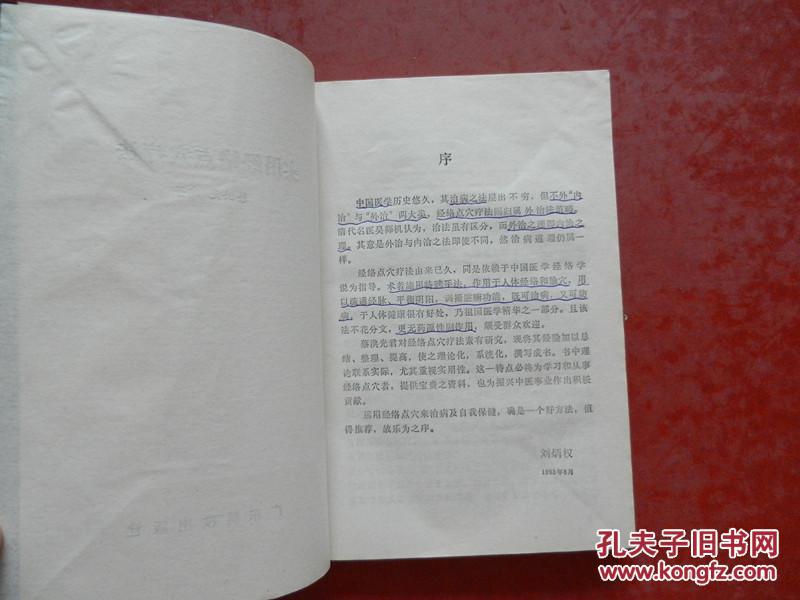 序
中国医学历史悠久，其治病之法层出不穷，但不外“内
治”与“外治”两大类，经络点穴疗法则归属外治法范畴。
清代名医吴师机认为，治法虽有区分，而外治之理即内治之
理。其意是外治与内治之法即使不同，然治病道理仍属一
样。
经络点穴疗法由来已久，同是依赖于中国医学经络学
说为指导。术者施用特殊手法，作用于人体经络和腧穴，用
以疏通经脉、平衡阴阳，调摄脏腑功能，既可治病，又可防
病，于人体健康很有好处，乃祖国医学精华之一部分。且该
法不花分文，更无药源性副作用，颇受群众欢迎。
蔡洪光君对经络点穴疗法素有研究，现将其经验加以总
结、整理、提高，使之理论化，系统化，撰写成书。书中理
论联系实际，尤其重视实用性。这一特点必将为学习和从事
经络点穴者，提供宝贵之资料，也为振兴中医事业作出积极
贡献。
运用经络点穴来治病及自我保健，确是一个好方法，值
得推荐，故乐为之序。
刘炳权
1993年8月
广东科技出版社
孔夫子旧书网
www.kongfz.com